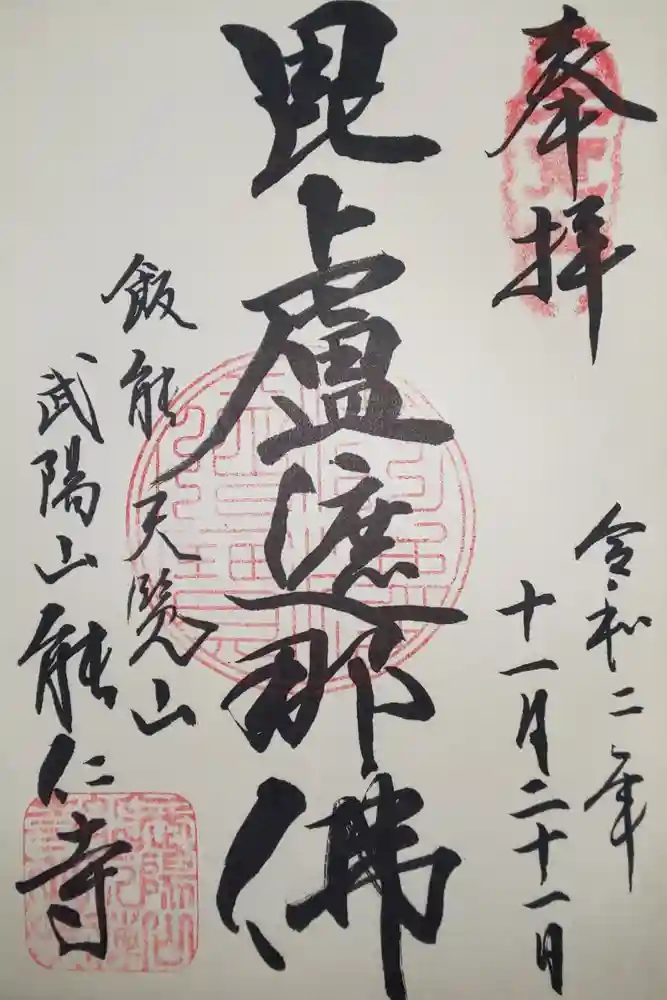 奉拝
令和二年
十一月二十一月
毘盧遮那佛
飯能 天覧山
武陽山 能仁寺